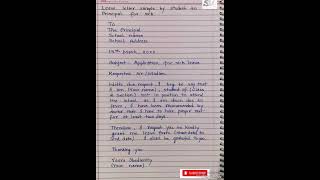 Leave letter sample by student to
Principal for sick
To
The Principal
School name
School Address
Subject - Application for sick leave
Respected Sir/Madam
With due respect I beg to say that
I am (Your name), student of (Class
& Section) not in position to attend
the school as I am down due to
fever. I have been recommended by
doctor that I have to take proper rest for
at least two days.
Therefore, I request you to kindly
grant me leave from (start date) to
(end date). I shall be grateful to you.
Thanking you
Yours Obediently
(Your name).
SUBSCRIBE